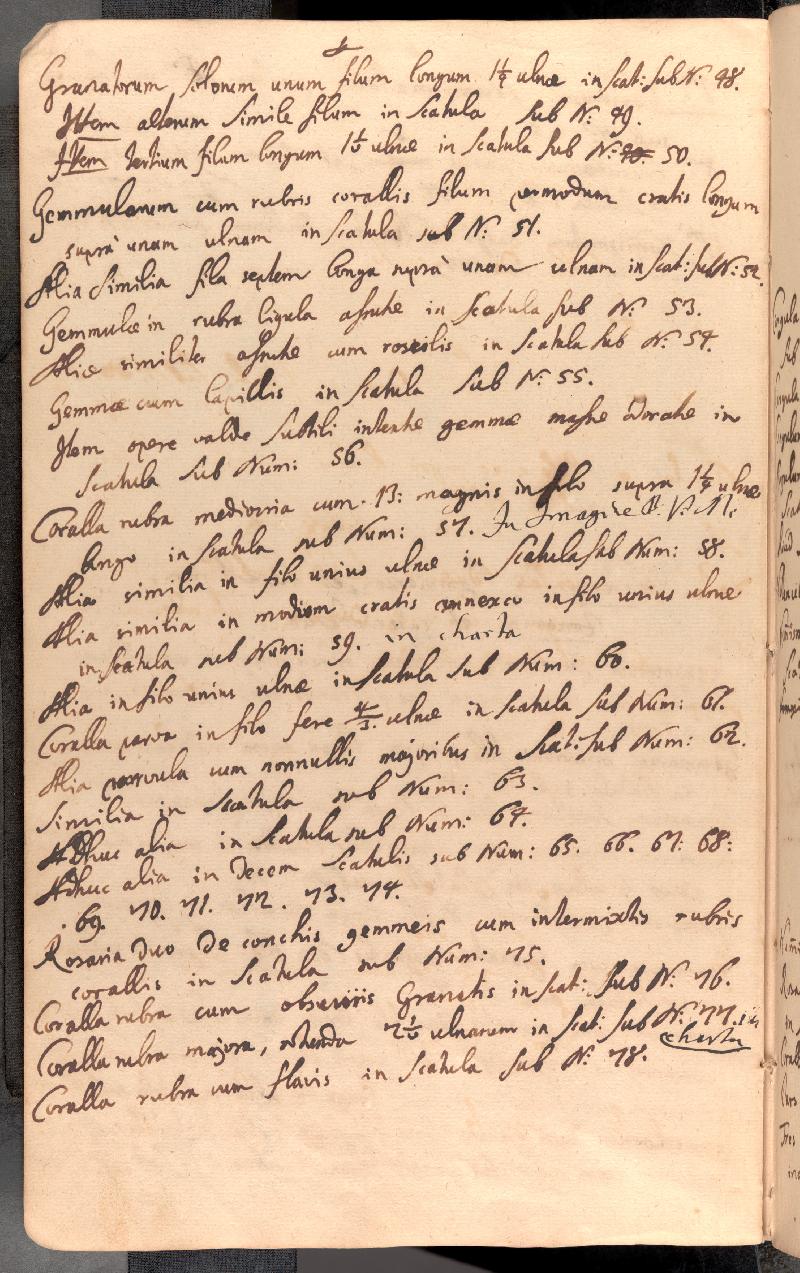 Granatorum solorum unum filum longum 1¼ ulnæ in scat: sub N: 48.
Item alterum simile filum in scatula sub N: 49.
Item tertium filum longum ulnæ in scatula sub N: 50.
Gemmularum cum rubris corallis filum permodum cratis longum
supra unam ulnam in scatula sub N: 51.
Alia similia fila septem longa supra unam ulnam in scat: sub N: 52.
Gemmulæ in rubra ligula assutæ in scatula sub N: 53.
Aliæ similiter assutæ cum in scatula sub N: 54.
Gemmæ cum lapillis in scatula sub N: 55.
Item opere valde subtili intextæ gemmæ in
scatula sub Num: 56.
Coralla rubra mediocria cum 13: magnis in filo supra 1¼ ulnæ
longo in scatula sub Num: 57. In Imagine B: V: M:
Alia similia in filo unius ulnæ in scatula sub Num: 58.
Alia similia in modum cratis connexa in filo unius ulnæ
in scatula sub Num: 59. in charta
Alia in filo unius ulnæ in scatula sub Num: 60.
Coralla parva in filo fere ulnæ in scatula sub Num: 61.
Alia parvula cum nonnullis majoribus in scat: sub Num: 62.
Similia in scatula sub Num: 63.
Adhuc alia in scatula sub Num: 64.
Adhuc alia in decem scatulis sub Num: 65. 66. 67: 68:
69. 70. 71. 72. 73. 74.
Rosaria duo de conchis gemmeis cum intermixtis rubris
corallis in scatula sub Num: 75.
Coralla rubra cum obscuris Granatis in scat: sub N: 76.
Coralla rubra majora, rotunda ulnarum in scat: sub N: 77. in
charta
Coralla rubra cum flavis in scatula sub N: 78.